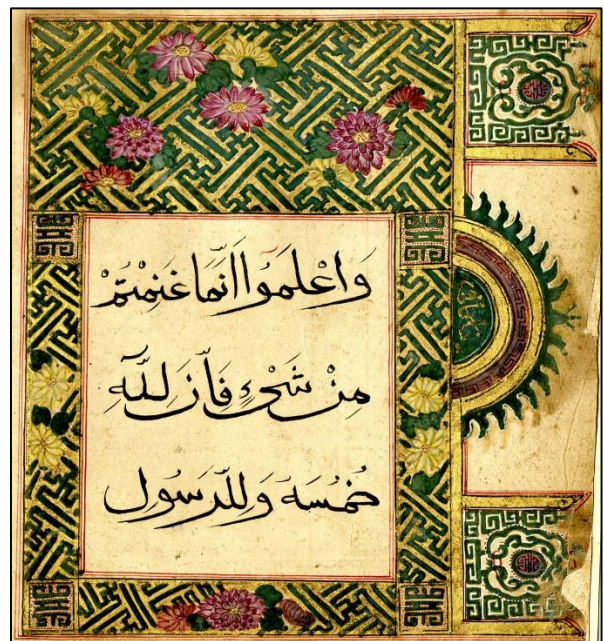 وَاعْلَمُوٓا اَنَّمَا غَنِمْتُمْ
مِنْ شَىْءٍ فَاَنَّ لِلّٰهِ
خُمُسَهٗ وَلِلرَّسُولِ